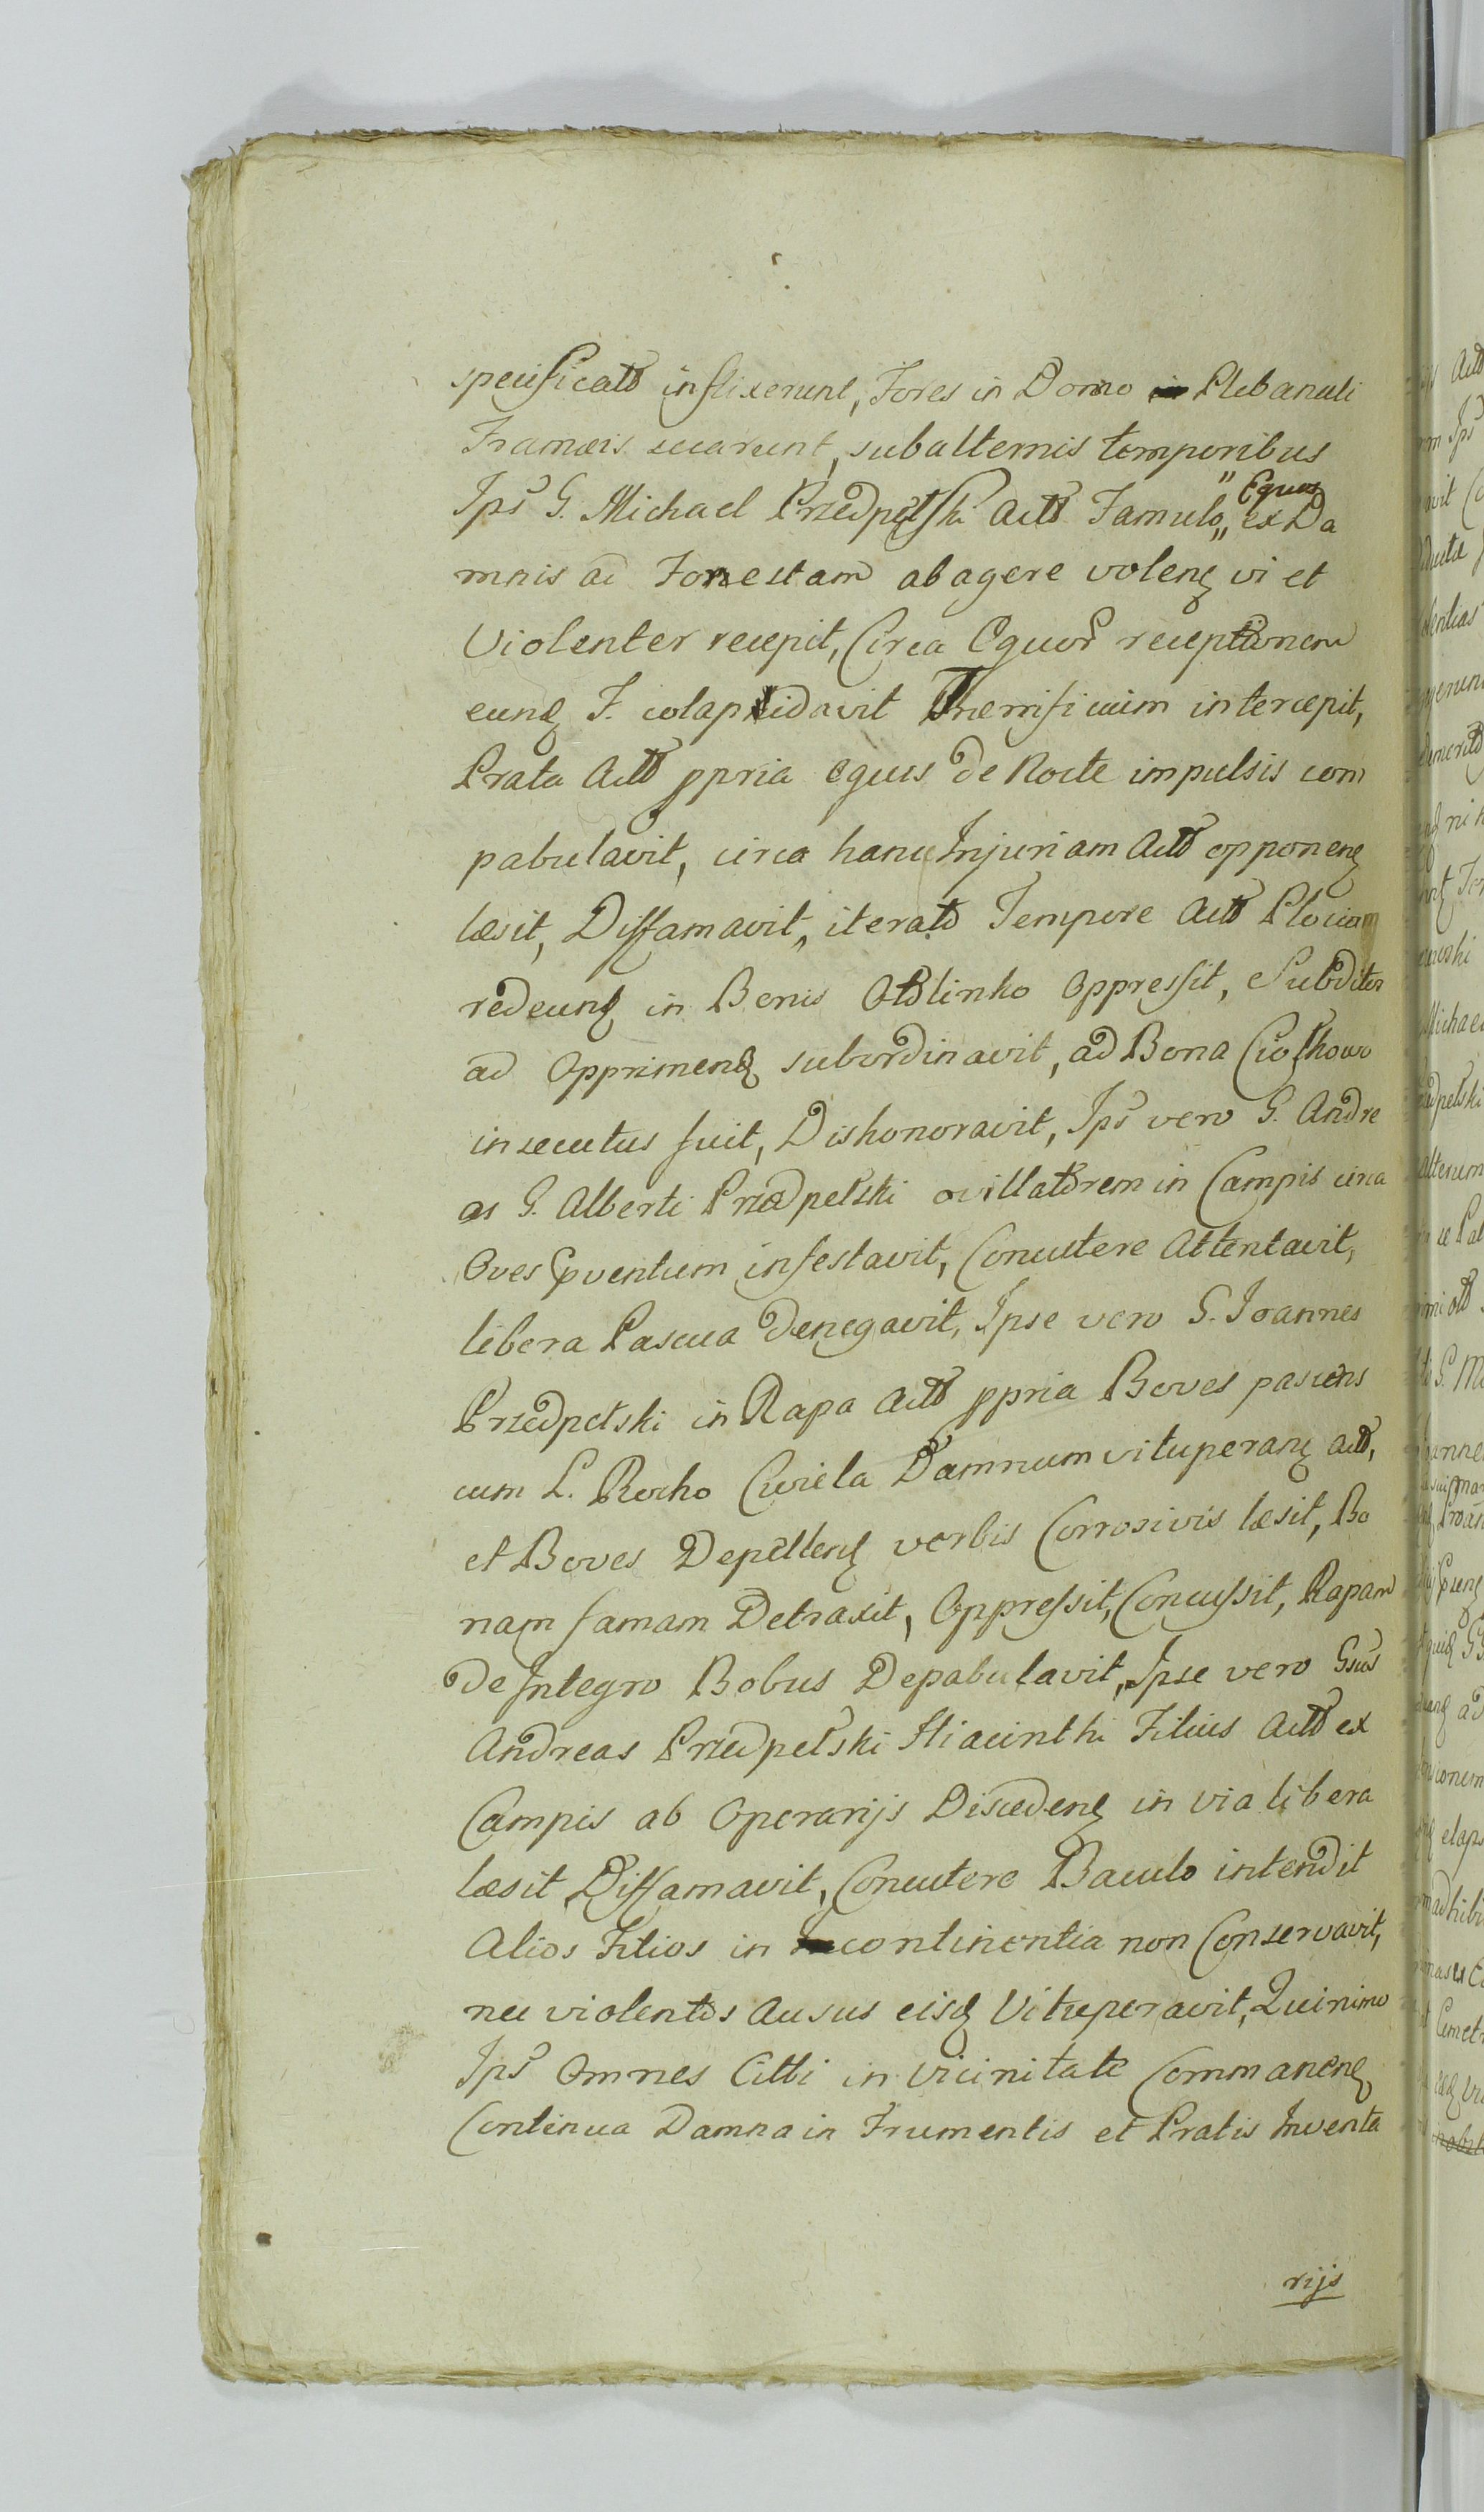 specificato inflixerunt, Fores in Domo Plebanali
Frameis secarunt, subalternis temporibus
Ips G. Michael Przedpełski Acto Famulo „ Equos „ ex Da
mnis ad Forestam abagere volenʒ vi et
Violenter recepit, Circa Equor receptionem
eunʒ F. colaphidavit intercepit,
Prata Acto ppria equis de Nocte impulsis com
pabulavit, circa hanc Injuriam Acto opponenʒ
læsit, Diffamavit, iterato Tempore Acto Plociam
redeunʒ in Bonis Otolinko Oppressit, Subditos
ad Opprimenʒ subordinavit, ad Bona Ciołkowo
insecutus fuit, Dishonoravit, Ips vero G. Andre
as G. Alberti Przedpełski ovillatorem in Campis circa
Oves infestavit, Concutere Attentavit,
libera Pascua denegavit, Ipse vero G. Joannes
Przedpełski in Rapa Acto ppria Boves pascens
cum L. Rocho Cwiela Damnum vituperanʒ Acto,
et Boves Depellenʒ verbis Corrosivis læsit, Bo
nam famam Detraxit, Oppressit, Concussit, Rapam
de Integro Bobus Depabulavit, Ipse vero Gsus
Andreas Przedpełski Hiacinthi Filius Acto ex
Campis ab Operarijs Discedenʒ in via libera
læsit, Diffamavit, Concutere Baculo intendit
Alios Filios in continentia non Conservavit,
nec violentos Ausus eisʒ Vituperavit, Quinimo
Ips Omnes Citti in vicinitate Commanenʒ
Continua Damna in Frumentis et Pratis Inventa
rijs